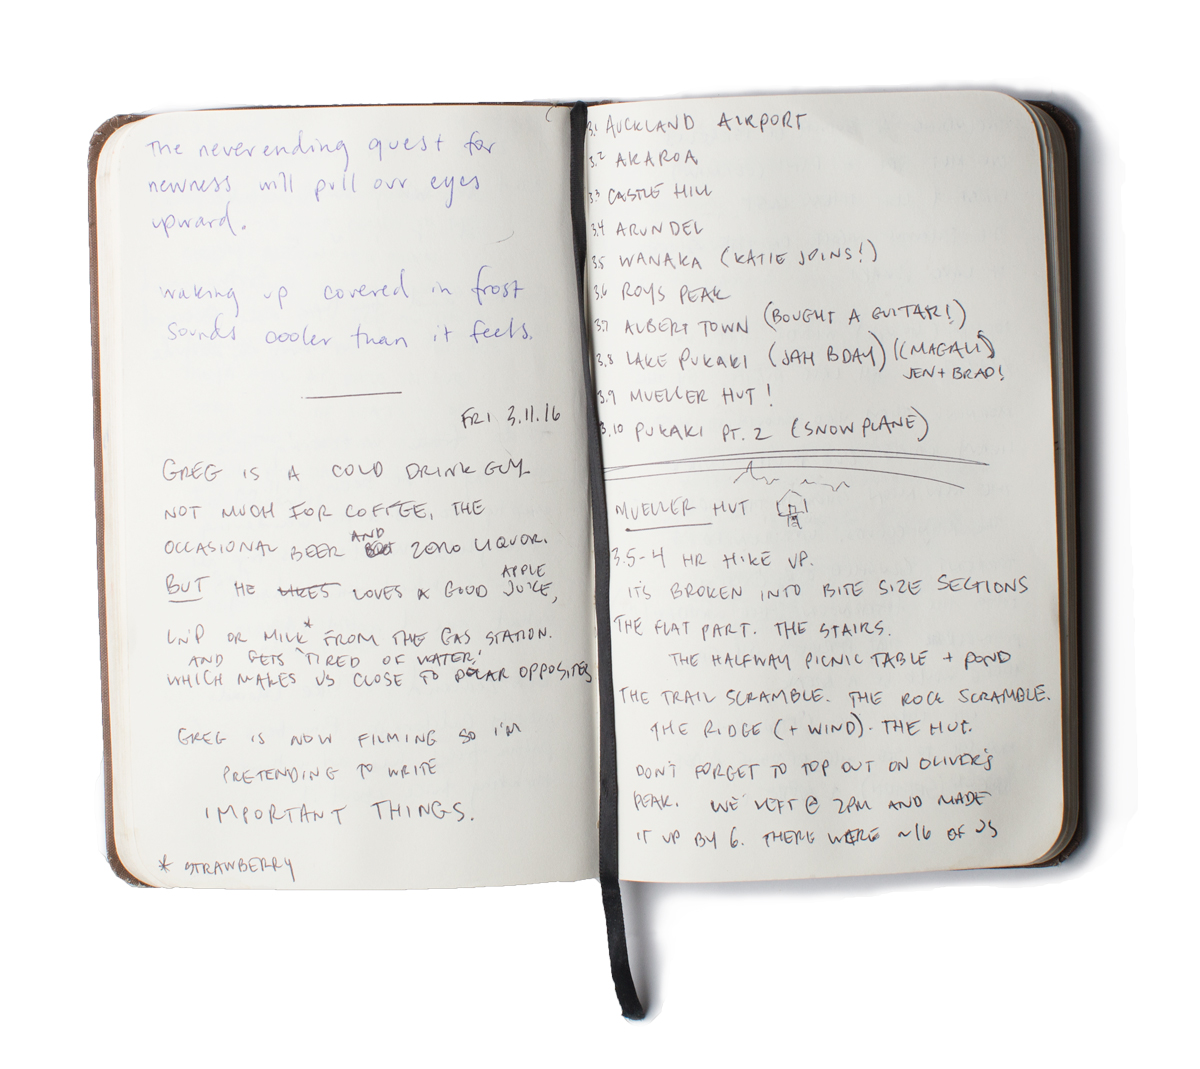 The neverending quest for
newness will pull our eyes
upward.
waking up covered in frost
sounds cooler than it feels.
FRI 3.11.16
GREG IS A COLD DRINK GUY.
NOT MUCH FOR COFFEE, THE
OCCASIONAL BEER AND ZERO LIQUOR.
BUT HE LIKES LOVES A GOOD APPLE JUICE,
OR MILK* FROM THE GAS STATION.
AND GETS 'TIRED OF WATER,'
WHICH MAKES US CLOSE TO POLAR OPPOSITES
GREG IS NOW FILMING SO I'M
PRETENDING TO WRITE
IMPORTANT THINGS.
* STRAWBERRY
3.1 AUCKLAND AIRPORT
3.2 AKAROA
3.3 CASTLE HILL
3.4 ARUNDEL
3.5 WANAKA (KATIE JOINS!)
3.6 ROYS PEAK
3.7 ALBERT TOWN (BOUGHT A GUITAR!)
3.8 LAKE PUKAKI (JAH BDAY) (MAGALI)
JEN + BRAD!
3.9 MUELLER HUT!
3.10 PUKAKI PT. 2 (SNOW PLANE)
MUELLER HUT
3.5-4 HR HIKE UP.
IT'S BROKEN INTO BITE SIZE SECTIONS
THE FLAT PART. THE STAIRS.
THE HALFWAY PICNIC TABLE + POND
THE TRAIL SCRAMBLE. THE ROCK SCRAMBLE.
THE RIDGE (+ WIND). THE HUT.
DON'T FORGET TO TOP OUT ON OLIVER'S
PEAK. WE LEFT @ 2PM AND MADE
IT UP BY 6. THERE WERE ~16 OF US